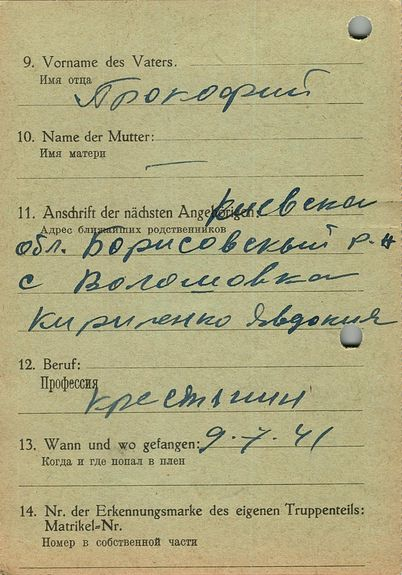 9. Vorname des Vaters.
Имя отца
Прокофий
10. Name der Mutter:
Имя матери
—
11. Anschrift der nächsten Angehörigen:
Адрес ближайших родственников
Киевска
обл. Борисовский р-н
с Воломовка
Кириленко Явдокия
12. Beruf:
Профессия
крестьянин
13. Wann und wo gefangen: 9.7.41
Когда и где попал в плен
14. Nr. der Erkennungsmarke des eigenen Truppenteils:
Matrikel-Nr.
Номер в собственной части